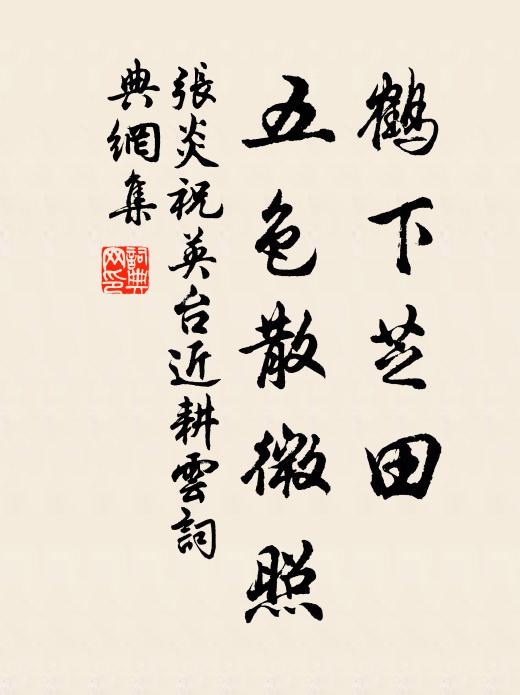 鶴下芝田
五色散微照
張炎祝英台近耕雲詞
典網集
詞典網印